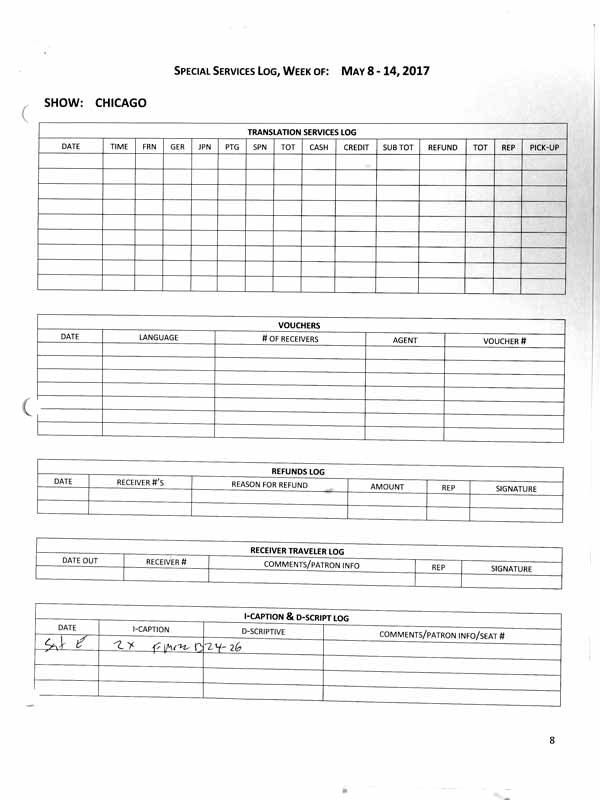 SPECIAL SERVICES LOG, WEEK OF: MAY 8 - 14, 2017
SHOW: CHICAGO
TRANSLATION SERVICES LOG
DATE TIME FRN GER JPN PTG SPN TOT CASH CREDIT SUB TOT REFUND TOT REP PICK-UP
VOUCHERS
DATE LANGUAGE # OF RECEIVERS AGENT VOUCHER #
REFUNDS LOG
DATE RECEIVER #'S REASON FOR REFUND AMOUNT REP SIGNATURE
RECEIVER TRAVELER LOG
DATE OUT RECEIVER # COMMENTS/PATRON INFO REP SIGNATURE
I-CAPTION & D-SCRIPT LOG
DATE I-CAPTION D-SCRIPTIVE COMMENTS/PATRON INFO/SEAT #
Sat E 2x 24-26
8